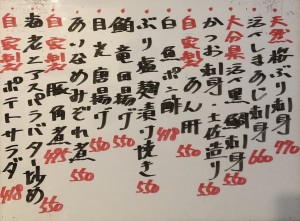 天然 桜ぶり刺身 770
活〆しまあじ刺身 660
大分県 活〆黒鯛刺身 550
かつお刺身・土佐造り 550
自家製 あん肝 550
白魚ポン酢 418
ぶり塩麹漬け焼き 550
鮪竜田揚げ 550
目光唐揚げ 550
あいなめみぞれ煮 550
自家製 豚角煮 495
海老とアスパラバター炒め 550
自家製 ポテトサラダ 418